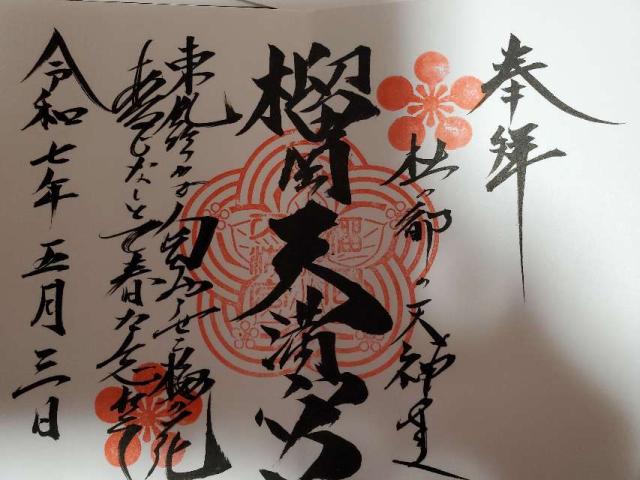 奉拝
杜の都の天神さま
榴岡天満宮
東風吹かば匂ひおこせよ梅の花
あるじなしとて春な忘れそ
令和七年五月三日